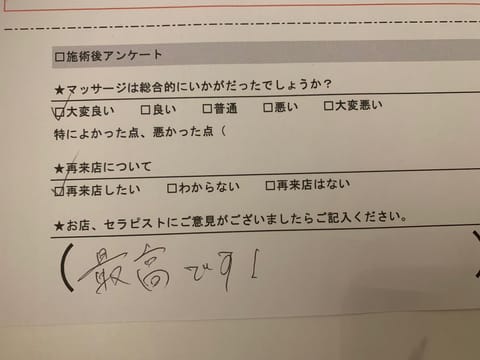 □施術後アンケート
★マッサージは総合的にいかがだったでしょうか？
☑大変良い □良い □普通 □悪い □大変悪い
特によかった点、悪かった点（
★再来店について
☑再来店したい □わからない □再来店はない
★お店、セラピストにご意見がございましたらご記入ください。
（最高です！）